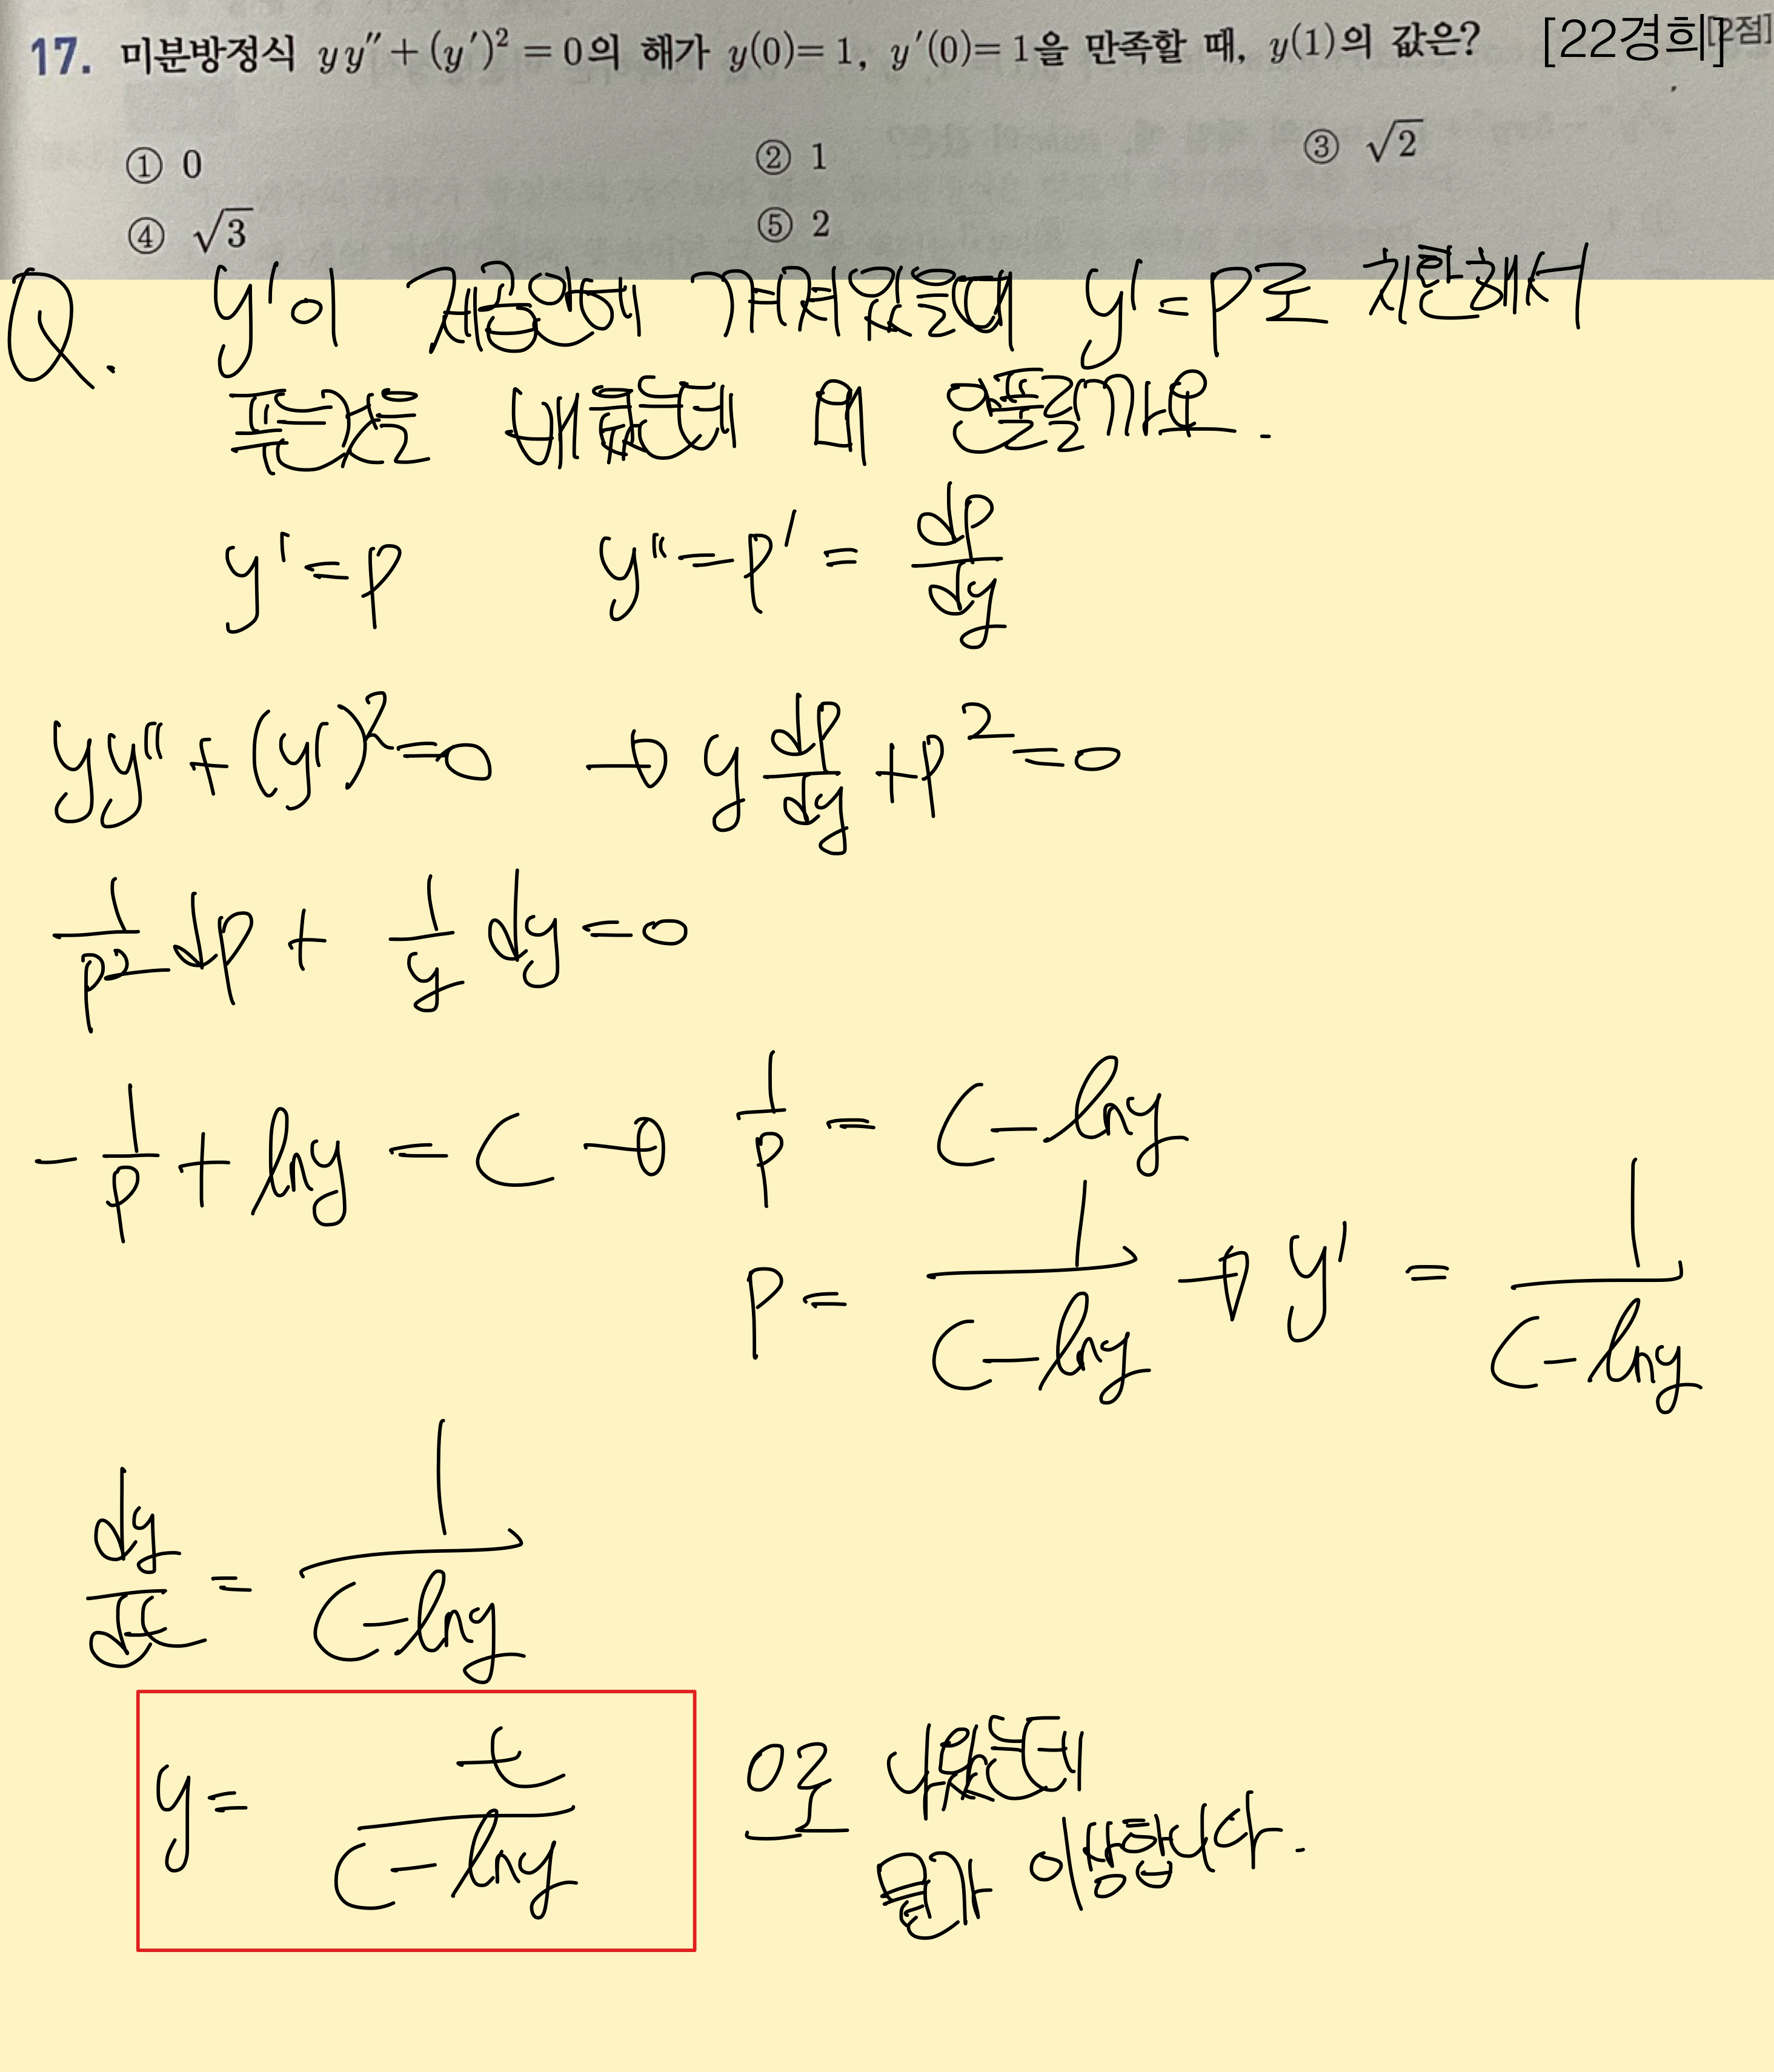 17. 미분방정식 yy″+(y′)²=0의 해가 y(0)=1, y′(0)=1을 만족할 때, y(1)의 값은? [22경희] [2점]
① 0 ② 1 ③ √2
④ √3 ⑤ 2
Q. y'이 제곱안에 가져있을때 y'=p로 치환해서
푸는것은 배웠는데 왜 안풀릴까요.
y'=p y''=p' = dp/dy
yy''+(y')²=0 → y dp/dy +p²=0
1/p² dp + 1/y dy=0
-1/p + lny = C → 1/p = C-lny
p= 1/(C-lny) → y' = 1/(C-lny)
dy/dt = 1/(C-lny)
y= t/(C-lny) 으로 나왔는데
뭔가 이상합니다.